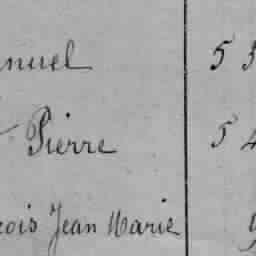 nuel 5 5
Pierre 5 4
çois Jean Marie